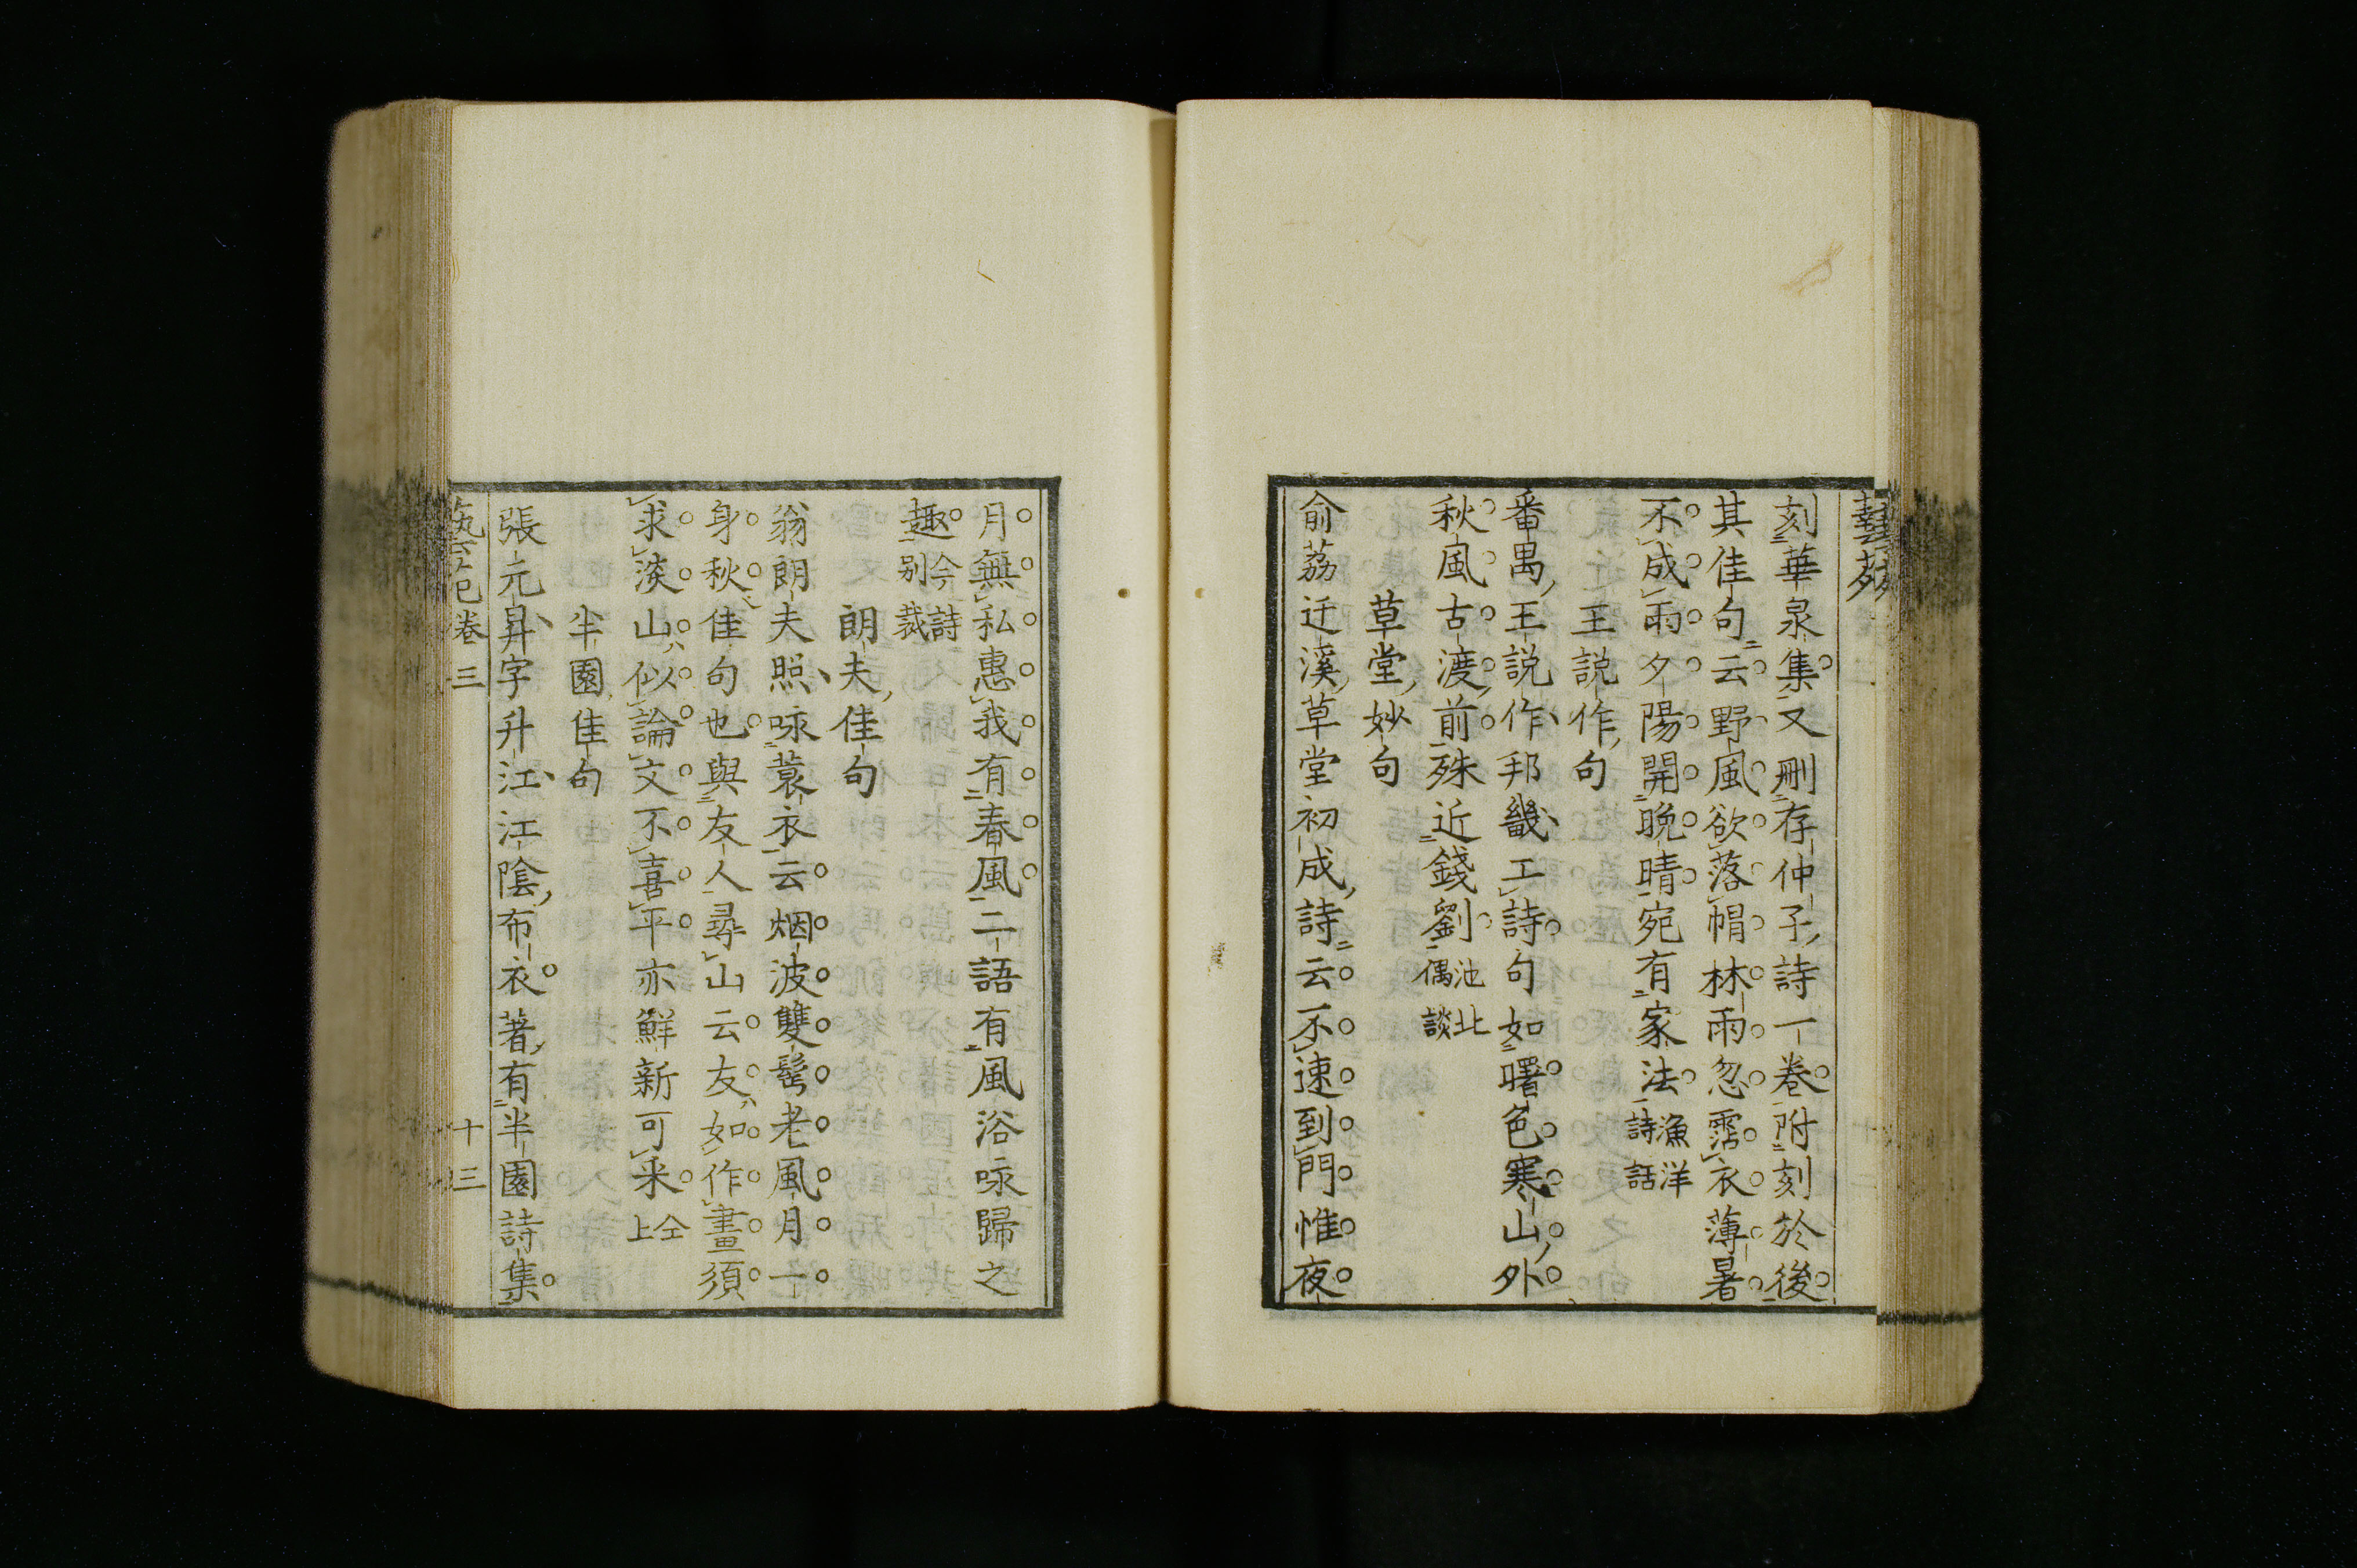 藝苑
刻華泉集又刪存仲子詩一卷附刻於後
其佳句云野風欲落帽林雨忽霑衣薄暑
不成雨夕陽開晚晴宛有家法漁洋詩話
王説作句
番禺王説作邦畿工詩句如曙色寒山外
秋風古渡前殊近錢劉池北偶談
草堂妙句
俞荔迂溪草堂初成詩云不速到門惟夜
月無私惠我有春風二語有風浴咏歸之
趣今詩别裁
朗夫佳句
翁朗夫照咏蓑衣云烟波雙鬂老風月一
身秋佳句也與友人尋山云友如作畫須
求淡山似論文不喜平亦鮮新可采仝上
半園佳句
張元昇字升江江陰布衣著有半園詩集
卷三 十三